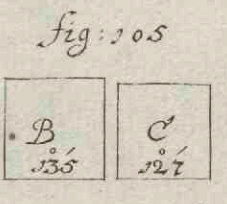 fig: 105
B C
13̊5́ 12̊7́